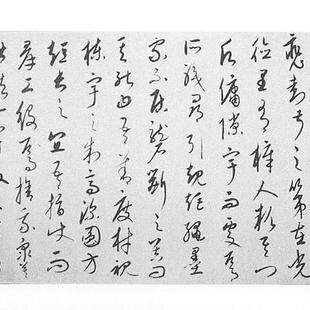 裴封叔之第在光
德里有梓人款其門
願傭隙宇而處焉
所職尋引規矩繩墨
家不居礱斲之器問
其能曰吾善度材視
棟宇之制高深圓方
短長之宜吾指使而
羣工役焉捨我衆莫